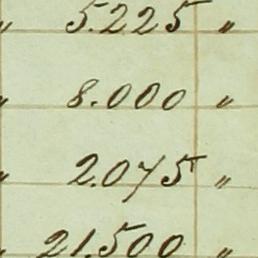 „ 5.225 „
„ 8.000 „
„ 2.075 „
„ 21.500 „